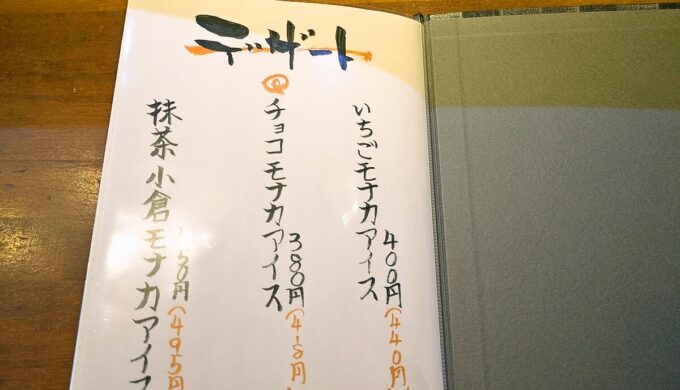 デザート
いちごモナカアイス
400円(440円)
チョコモナカアイス
380円(418円
抹茶小倉モナカアイス
450円(495円